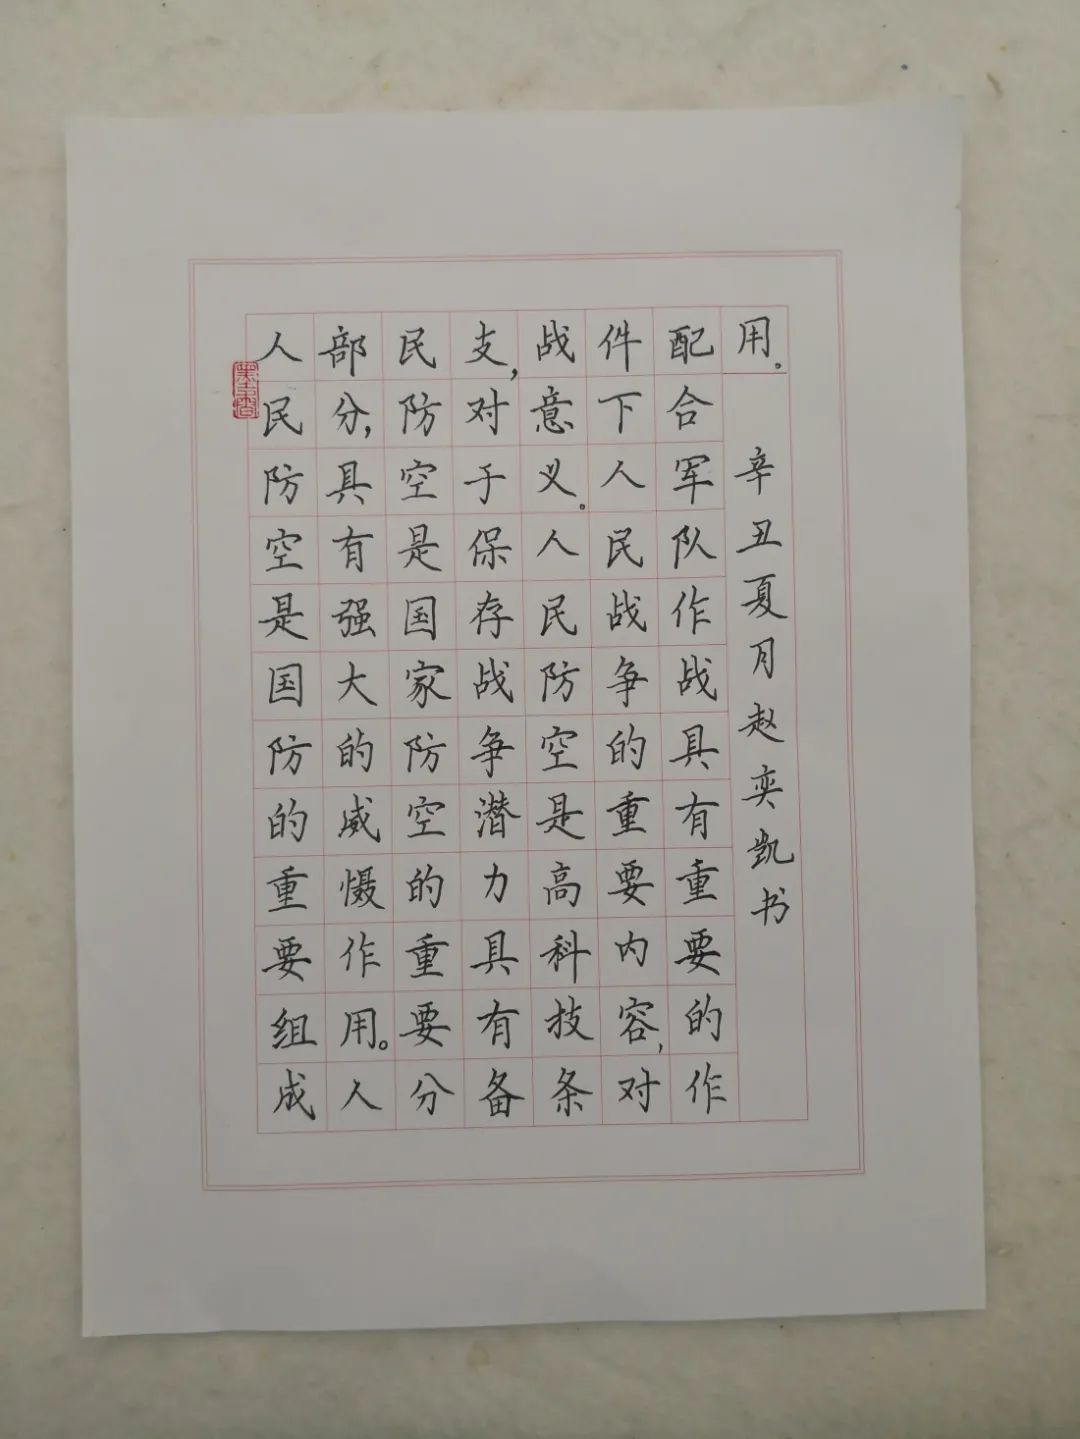 人民防空是国防的重要组成
部分,具有强大的威慑作用。人
民防空是国家防空的重要分
支,对于保存战争潜力具有备
战意义。人民防空是高科技条
件下人民战争的重要内容,对
配合军队作战具有重要的作
用。
辛丑夏月赵奕凯书